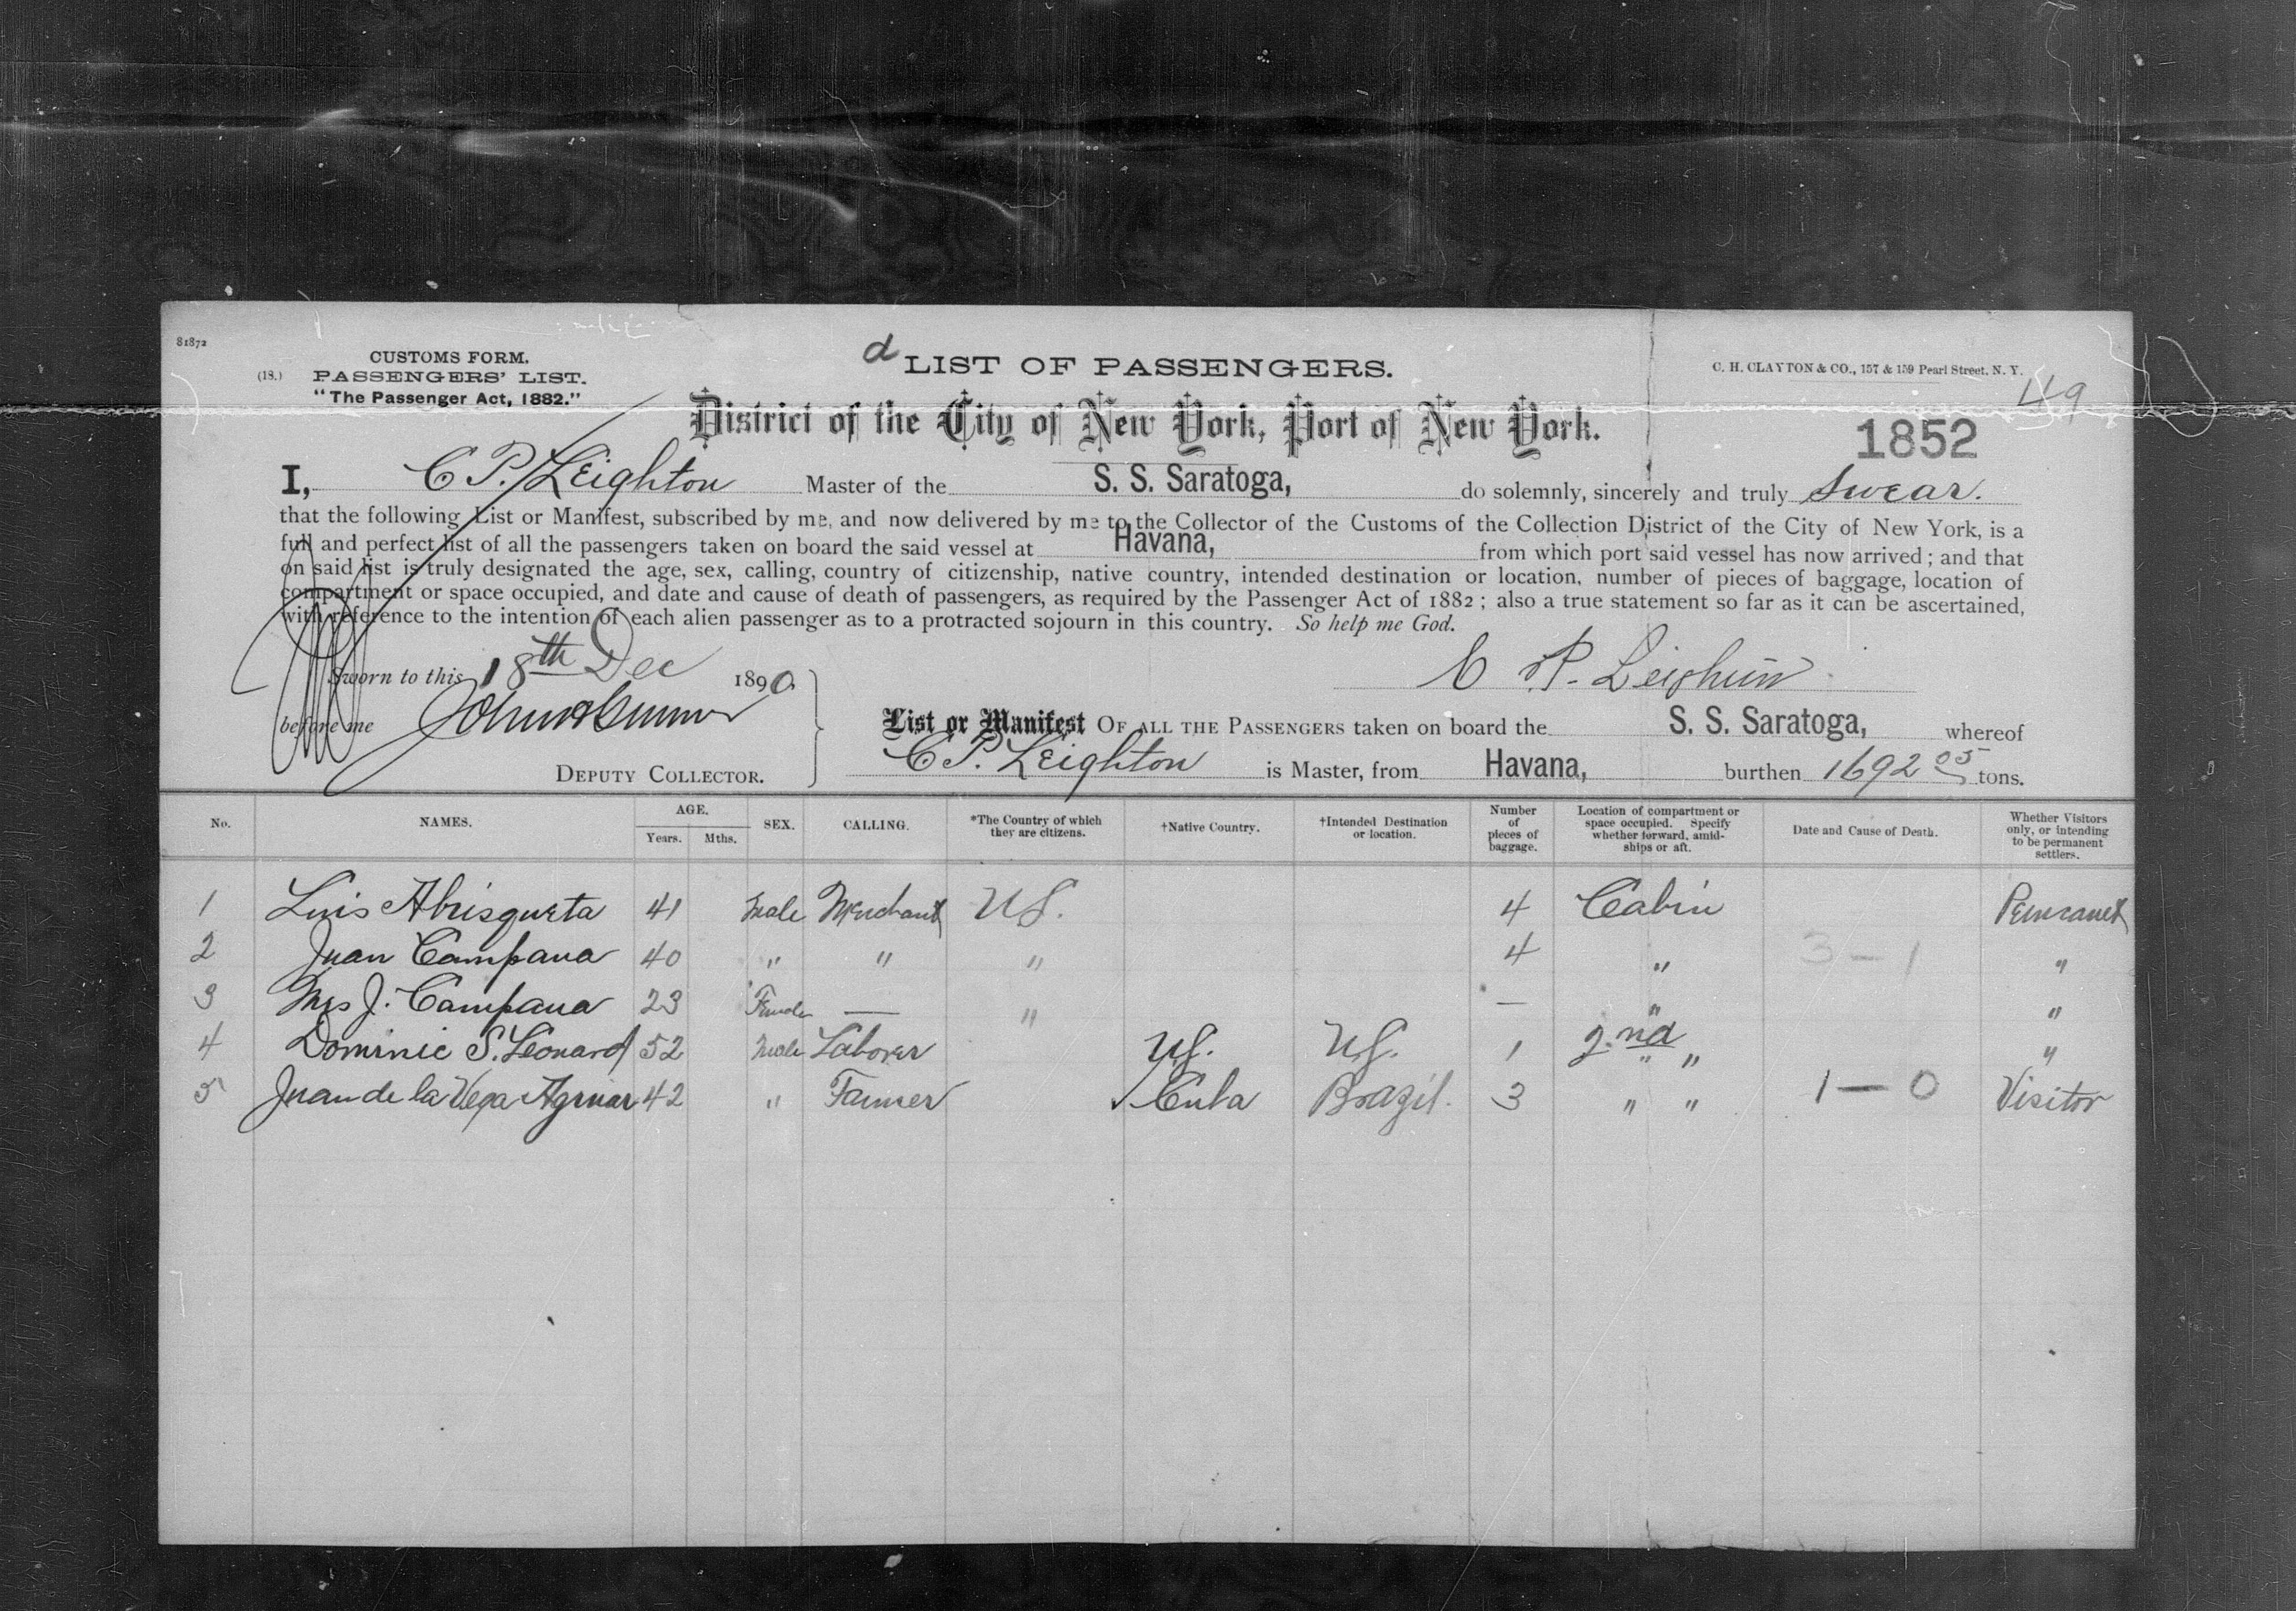 81872
CUSTOMS FORM.
(18.) PASSENGERS' LIST.
"The Passenger Act, 1882."
d LIST OF PASSENGERS.
C. H. CLAYTON & CO., 157 & 159 Pearl Street, N. Y.
149
District of the City of New York, Port of New York.
1852
I, C P. Leighton Master of the S. S. Saratoga, do solemnly, sincerely and truly swear.
that the following List or Manifest, subscribed by me, and now delivered by me to the Collector of the Customs of the Collection District of the City of New York, is a
full and perfect list of all the passengers taken on board the said vessel at Havana, from which port said vessel has now arrived; and that
on said list is truly designated the age, sex, calling, country of citizenship, native country, intended destination or location, number of pieces of baggage, location of
compartment or space occupied, and date and cause of death of passengers, as required by the Passenger Act of 1882; also a true statement so far as it can be ascertained,
with reference to the intention of each alien passenger as to a protracted sojourn in this country. So help me God.
Sworn to this 18th Dec 1890
C P. Leighton
before me
DEPUTY COLLECTOR.
List or Manifest OF ALL THE PASSENGERS taken on board the S. S. Saratoga, whereof
C P. Leighton is Master, from Havana, burthen 1692 05 tons.
No. NAMES. AGE. Years. Mths. SEX. CALLING. *The Country of which they are citizens. †Native Country. †Intended Destination or location. Number of pieces of baggage. Location of compartment or space occupied. Specify whether forward, amidships or aft. Date and Cause of Death. Whether Visitors only, or intending to be permanent settlers.
1 Luis Abrisqueta 41 Male Merchant U S. 4 Cabin
2 Juan Campana 40 " " " 4 " 3 — 1 "
3 Mrs J. Campana 23 Female — " — " "
4 Dominic S. Leonard 52 Male Laborer U S. U S. 1 2nd " " "
5 Juan de la Vega Aguiar 42 " Farmer Cuba Brazil. 3 " " 1 — 0 Visitor